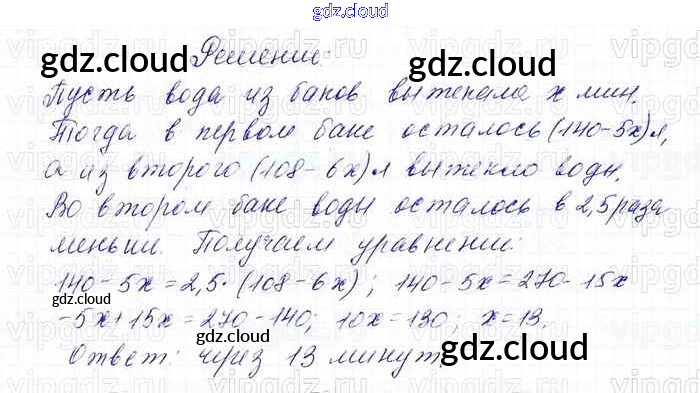 gdz.cloud
Решении:
Пусть вода из баков вытекала x мин.
Тогда в первом баке осталось (140-5x) л,
а из второго (108-6x) л вытекло воды.
Во втором баке воды осталось в 2,5 раза
меньши. Получаем уравнении:
140-5x=2,5·(108-6x); 140-5x=270-15x
-5x+15x=270-140; 10x=130; x=13.
Ответ: через 13 минут.
gdz.cloud
gdz.cloud
gdz.cloud
gdz.cloud
gdz.cloud